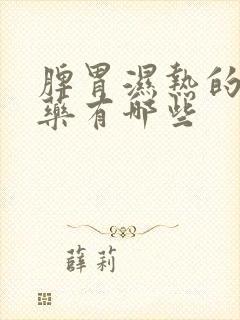 脾胃濕熱的
藥有哪些
薛莉